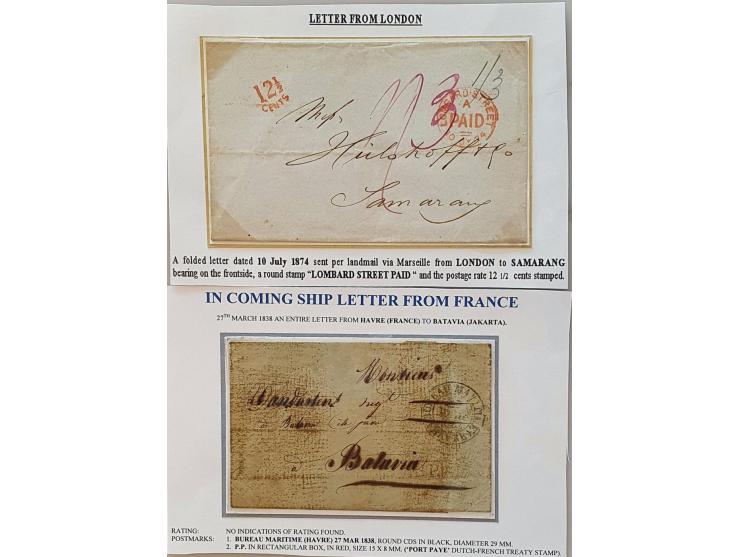 LETTER FROM LONDON
12½
CENTS
1/3
LOMBARD STREET
A
PAID
Mess
Samarang
A folded letter dated 10 July 1874 sent per landmail via Marseille from LONDON to SAMARANG
bearing on the frontside, a round stamp "LOMBARD STREET PAID " and the postage rate 12 1/2 cents stamped.
IN COMING SHIP LETTER FROM FRANCE
27TH MARCH 1838 AN ENTIRE LETTER FROM HAVRE (FRANCE) TO BATAVIA (JAKARTA).
Monsieur
Batavia
RATING: NO INDICATIONS OF RATING FOUND.
POSTMARKS: 1. BUREAU MARITIME (HAVRE) 27 MAR 1838, ROUND CDS IN BLACK, DIAMETER 29 MM.
2. P.P. IN RECTANGULAR BOX, IN RED, SIZE 15 X 8 MM. ('PORT PAYE' DUTCH-FRENCH TREATY STAMP).